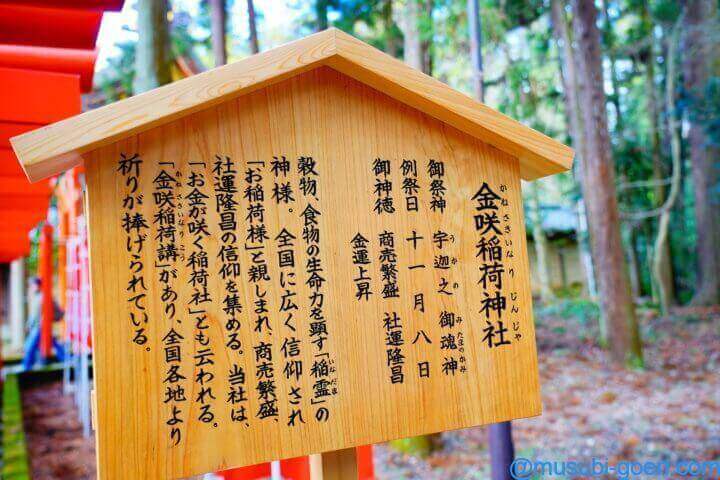 金咲稲荷神社
かねさきいなりじんじゃ
御祭神 宇迦之御魂神
うかの みたまのかみ
例祭日 十一月八日
御神徳 商売繁盛 社運隆昌
金運上昇
穀物、食物の生命力を顕す「稲霊」の
いなだま
神様。全国に広く信仰され
「お稲荷様」と親しまれ、商売繁盛、
社運隆昌の信仰を集める。当社は、
「お金が咲く稲荷社」とも云われる。
「金咲稲荷講」があり、全国各地より
かねさきいなりこう
祈りが捧げられている。
@musubi-goen.com